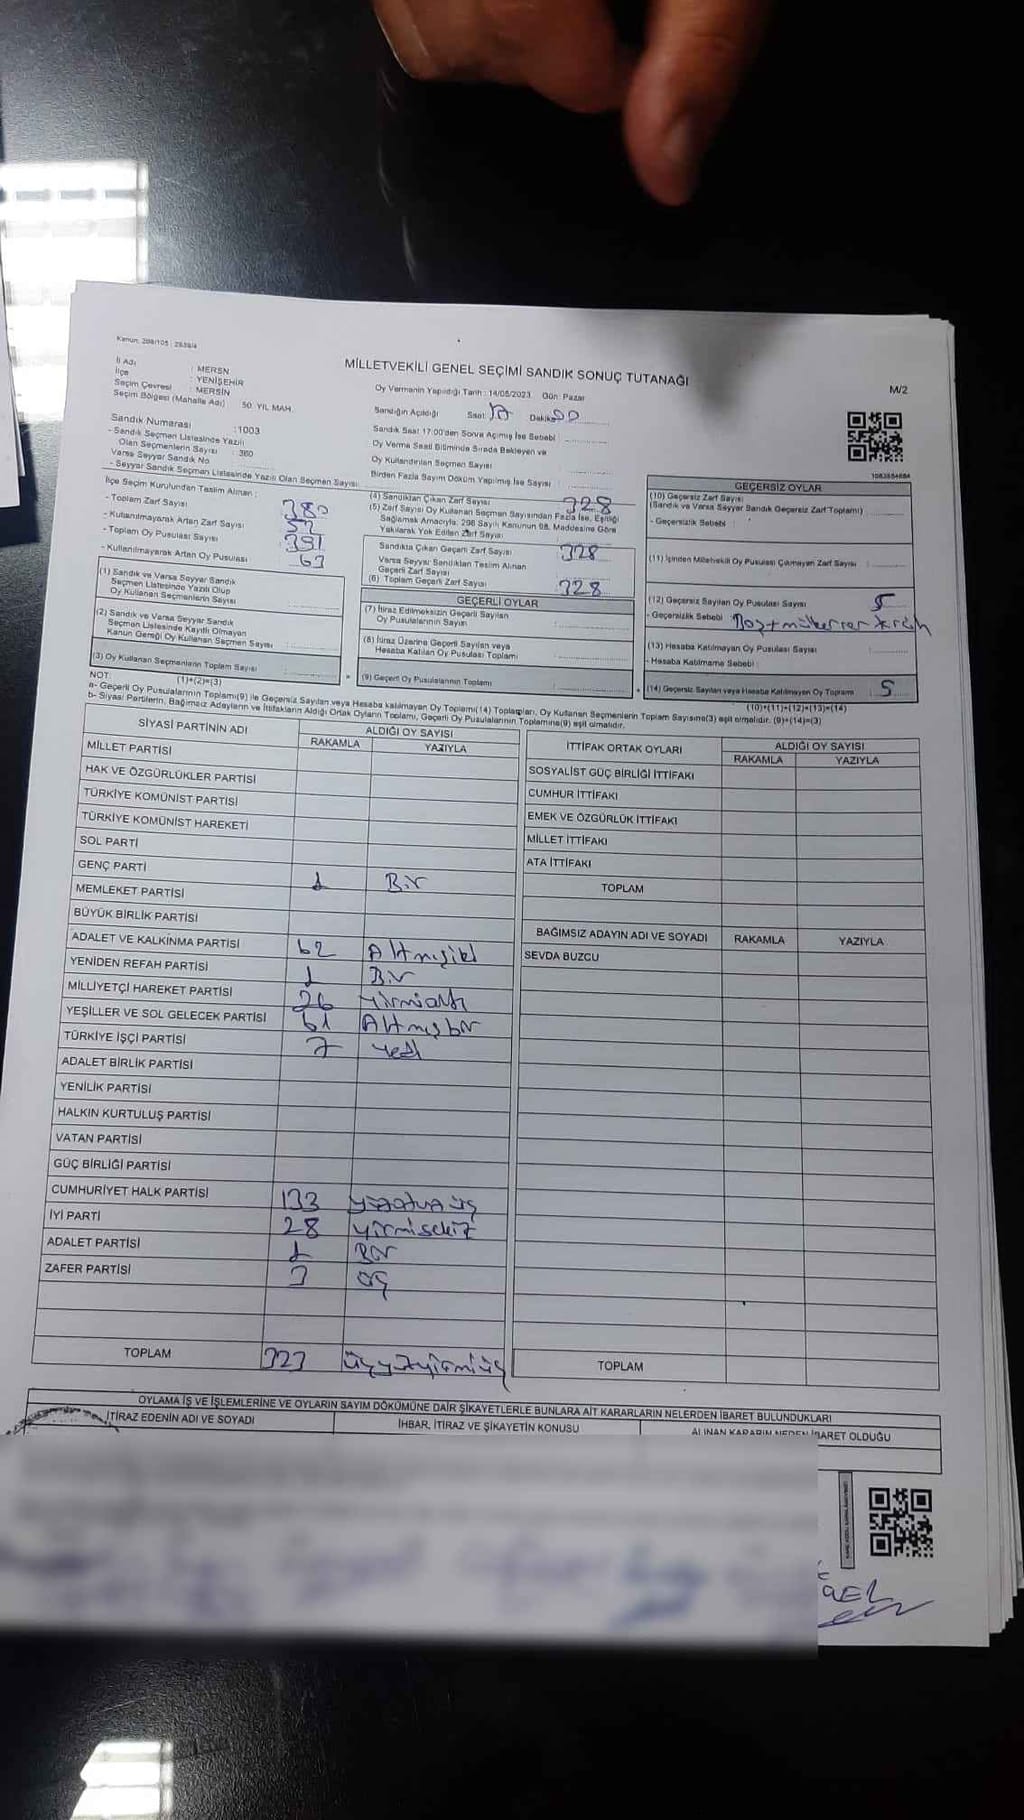 Kanun: 298/105 : 2839/4
MİLLETVEKİLİ GENEL SEÇİMİ SANDIK SONUÇ TUTANAĞI
M/2
İl Adı : MERSN
İlçe : YENİŞEHİR
Seçim Çevresi : MERSİN
Seçim Bölgesi (Mahalle Adı) 50 YIL MAH.
Oy Vermenin Yapıldığı Tarih : 14/05/2023 Gün: Pazar
Sandığın Açıldığı Saat: 17 Dakika 00
Sandık Numarası : 1003
- Sandık Seçmen Listesinde Yazılı
Olan Seçmenlerin Sayısı : 360
Varsa Seyyar Sandık No
- Seyyar Sandık Seçmen Listesinde Yazılı Olan Seçmen Sayısı
Sandık Saat 17:00'den Sonra Açılmış İse Sebebi
Oy Verme Saati Bitiminde Sırada Bekleyen ve
Oy Kullandırılan Seçmen Sayısı
Birden Fazla Sayım Döküm Yapılmış İse Sayısı
İlçe Seçim Kurulundan Teslim Alınan :
- Toplam Zarf Sayısı 380
- Kullanılmayarak Artan Zarf Sayısı
- Toplam Oy Pusulası Sayısı 391
- Kullanılmayarak Artan Oy Pusulası 63
(1) Sandık ve Varsa Seyyar Sandık
Seçmen Listesinde Yazılı Olup
Oy Kullanan Seçmenlerin Sayısı
(2) Sandık ve Varsa Seyyar Sandık
Seçmen Listesinde Kayıtlı Olmayan
Kanun Gereği Oy Kullanan Seçmen Sayısı
(3) Oy Kullanan Seçmenlerin Toplam Sayısı
(1)+(2)=(3)
(4) Sandıktan Çıkan Zarf Sayısı 328
(5) Zarf Sayısı Oy Kullanan Seçmen Sayısından Fazla İse, Eşitliği
Sağlamak Amacıyla, 298 Sayılı Kanunun 98. Maddesine Göre
Yakılarak Yok Edilen Zarf Sayısı
Sandıkta Çıkan Geçerli Zarf Sayısı 328
Varsa Seyyar Sandıktan Teslim Alınan
Geçerli Zarf Sayısı
(6) Toplam Geçerli Zarf Sayısı 328
GEÇERLİ OYLAR
(7) İtiraz Edilmeksizin Geçerli Sayılan
Oy Pusulalarının Sayısı
(8) İtiraz Üzerine Geçerli Sayılan veya
Hesaba Katılan Oy Pusulası Toplamı
(9) Geçerli Oy Pusulalarının Toplamı
GEÇERSİZ OYLAR
(10) Geçersiz Zarf Sayısı
(Sandık ve Varsa Seyyar Sandık Geçersiz Zarf Toplamı)
- Geçersizlik Sebebi :
(11) İçinden Milletvekili Oy Pusulası Çıkmayan Zarf Sayısı
(12) Geçersiz Sayılan Oy Pusulası Sayısı 5
- Geçersizlik Sebebi
(13) Hesaba Katılmayan Oy Pusulası Sayısı
- Hesaba Katılmama Sebebi :
(14) Geçersiz Sayılan veya Hesaba Katılmayan Oy Toplamı 5
(10)+(11)+(12)+(13)=(14)
NOT:
a- Geçerli Oy Pusulalarının Toplamı(9) ile Geçersiz Sayılan veya Hesaba katılmayan Oy Toplamı(14) Toplamları, Oy Kullanan Seçmenlerin Toplam Sayısına(3) eşit olmalıdır. (9)+(14)=(3)
b- Siyasi Partilerin, Bağımsız Adayların ve İttifakların Aldığı Ortak Oyların Toplamı, Geçerli Oy Pusulalarının Toplamına(9) eşit olmalıdır.
SİYASİ PARTİNİN ADI ALDIĞI OY SAYISI
RAKAMLA YAZIYLA
MİLLET PARTİSİ
HAK VE ÖZGÜRLÜKLER PARTİSİ
TÜRKİYE KOMÜNİST PARTİSİ
TÜRKİYE KOMÜNİST HAREKETİ
SOL PARTİ
GENÇ PARTİ
MEMLEKET PARTİSİ 1 Bir
BÜYÜK BİRLİK PARTİSİ
ADALET VE KALKINMA PARTİSİ 62 Altmışiki
YENİDEN REFAH PARTİSİ 1 Bir
MİLLİYETÇİ HAREKET PARTİSİ 26 yirmialtı
YEŞİLLER VE SOL GELECEK PARTİSİ 61 Altmışbir
TÜRKİYE İŞÇİ PARTİSİ 7 yedi
ADALET BİRLİK PARTİSİ
YENİLİK PARTİSİ
HALKIN KURTULUŞ PARTİSİ
VATAN PARTİSİ
GÜÇ BİRLİĞİ PARTİSİ
CUMHURİYET HALK PARTİSİ 133 yüzotuzüç
İYİ PARTİ 28 yirmisekiz
ADALET PARTİSİ 1 Bir
ZAFER PARTİSİ 3 üç
TOPLAM 323 üçyüzyirmiüç
İTTİFAK ORTAK OYLARI ALDIĞI OY SAYISI
RAKAMLA YAZIYLA
SOSYALİST GÜÇ BİRLİĞİ İTTİFAKI
CUMHUR İTTİFAKI
EMEK VE ÖZGÜRLÜK İTTİFAKI
MİLLET İTTİFAKI
ATA İTTİFAKI
TOPLAM
BAĞIMSIZ ADAYIN ADI VE SOYADI RAKAMLA YAZIYLA
SEVDA BUZCU
TOPLAM
OYLAMA İŞ VE İŞLEMLERİNE VE OYLARIN SAYIM DÖKÜMÜNE DAİR ŞİKAYETLERLE BUNLARA AİT KARARLARIN NELERDEN İBARET BULUNDUKLARI
İTİRAZ EDENİN ADI VE SOYADI İHBAR, İTİRAZ VE ŞİKAYETİN KONUSU ALINAN KARARIN NEDEN İBARET OLDUĞU